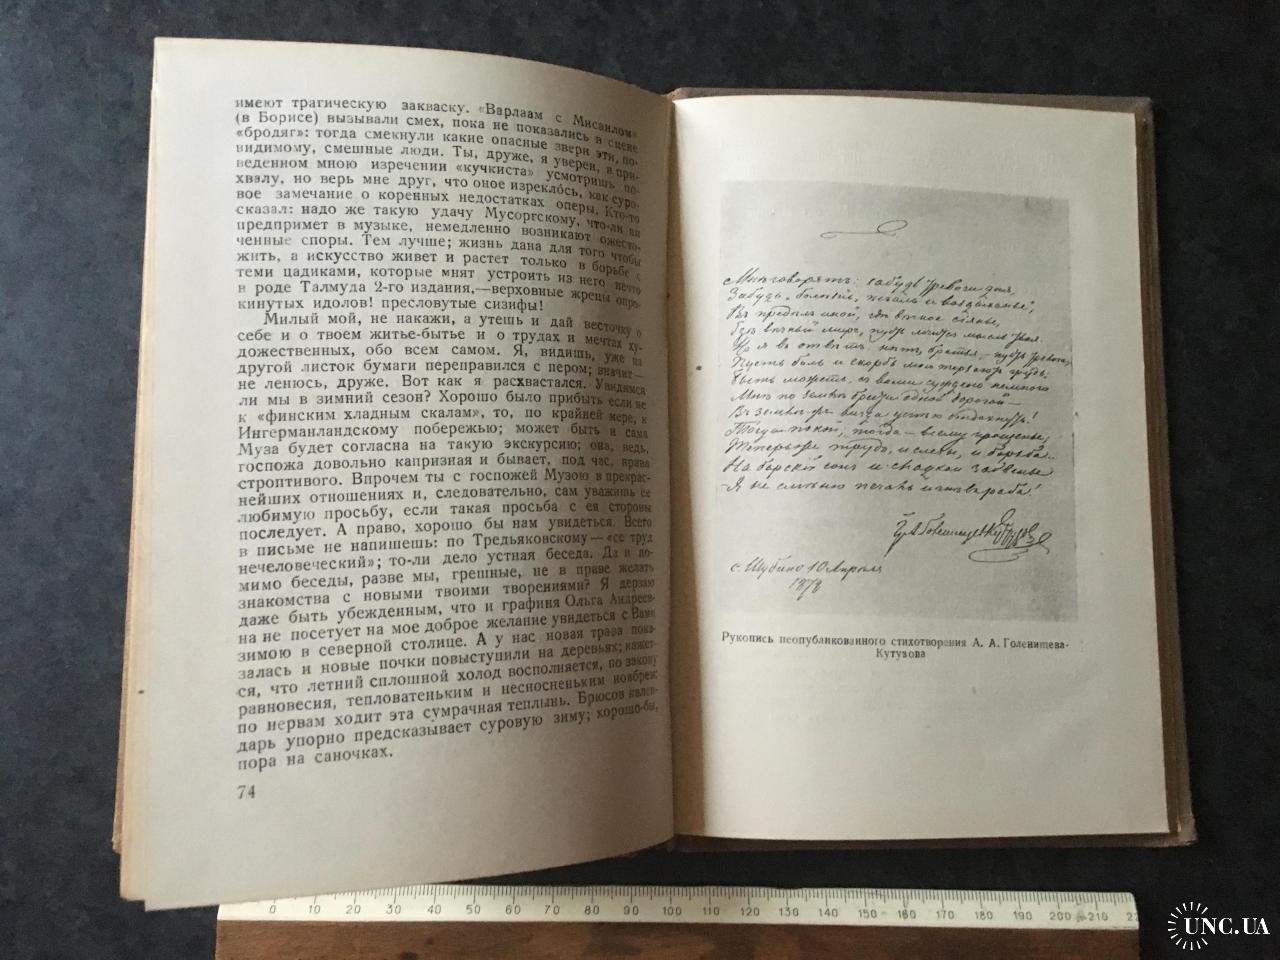 имеют трагическую закваску. «Варлаам с Мисаилом»
(в Борисе) вызывали смех, пока не показались в сцене
«бродяг»: тогда смекнули какие опасные звери эти, по-
видимому, смешные люди. Ты, друже, я уверен, в при-
веденном мною изречении «кучкиста» усмотришь по-
хвалу, но верь мне друг, что оное изреклось, как суро-
вое замечание о коренных недостатках оперы. Кто-то
сказал: надо же такую удачу Мусоргскому, что-ли он
предпримет в музыке, немедленно возникают ожесто-
ченные споры. Тем лучше; жизнь дана для того чтобы
жить, а искусство живет и растет только в борьбе с
теми цадиками, которые мнят устроить из него нечто
в роде Талмуда 2-го издания,—верховные жрецы опро-
кинутых идолов! пресловутые сизифы!
Милый мой, не накажи, а утешь и дай весточку о
себе и о твоем житье-бытье и о трудах и мечтах ху-
дожественных, обо всем самом. Я, видишь, уже на
другой листок бумаги переправился с пером; значит—
не ленюсь, друже. Вот как я расхвастался. Увидимся
ли мы в зимний сезон? Хорошо было прибыть если не
к «финским хладным скалам», то, по крайней мере, к
Ингерманландскому побережью; может быть и сама
Муза будет согласна на такую экскурсию; она, ведь,
госпожа довольно капризная и бывает, под час, нрава
строптивого. Впрочем ты с госпожей Музою в прекрас-
нейших отношениях и, следовательно, сам уважишь ее
любимую просьбу, если такая просьба с ея стороны
последует. А право, хорошо бы нам увидеться. Всего
в письме не напишешь: по Тредьяковскому—«се труд
нечеловеческий»; то-ли дело устная беседа. Да и по-
мимо беседы, разве мы, грешные, не в праве желать
знакомства с новыми твоими творениями? Я дерзаю
даже быть убежденным, что и графиня Ольга Андреев-
на не посетует на мое доброе желание увидеться с Вами
зимою в северной столице. А у нас новая трава пока-
залась и новые почки повыступили на деревьях; кажет-
ся, что летний сплошной холод восполняется, по закону
равновесия, тепловатеньким и несносненьким ноябрем;
по нервам ходит эта сумрачная теплынь. Брюсов кален-
дарь упорно предсказывает суровую зиму; хорошо-бы,
пора на саночках.
74
Мнѣ говорятъ: забудь тревоги дня,
Забудь болѣзни, печаль и воздыханье,
Въ предѣлъ иной, гдѣ вѣчное сіянье,
вѣчный миръ, пусть мысль твоя.
Но я въ отвѣтъ: нѣтъ, братья, пусть тревога,
Пусть боль и скорбь мою терзаютъ грудь;
Быть можетъ, съ вами
Мнѣ по землѣ брести одной дорогой—
Въ землѣ-жъ отдохнуть!
Тогда покой, тогда — всему прощенье,
Теперь же трудъ, и слезы, и борьба..
На барскій сонъ и сладкое забвенье
Я не смѣню печаль раба!
Гр. А Голенищев Кутузов
с. Шубино 10 Апрѣля
1878
Рукопись неопубликованного стихотворения А. А. Голенищева-
Кутузова
0 10 20 30 40 50 60 70 80 90 100 110 120 130 140 150 160 170 180 190 200 210 22
UNC.UA